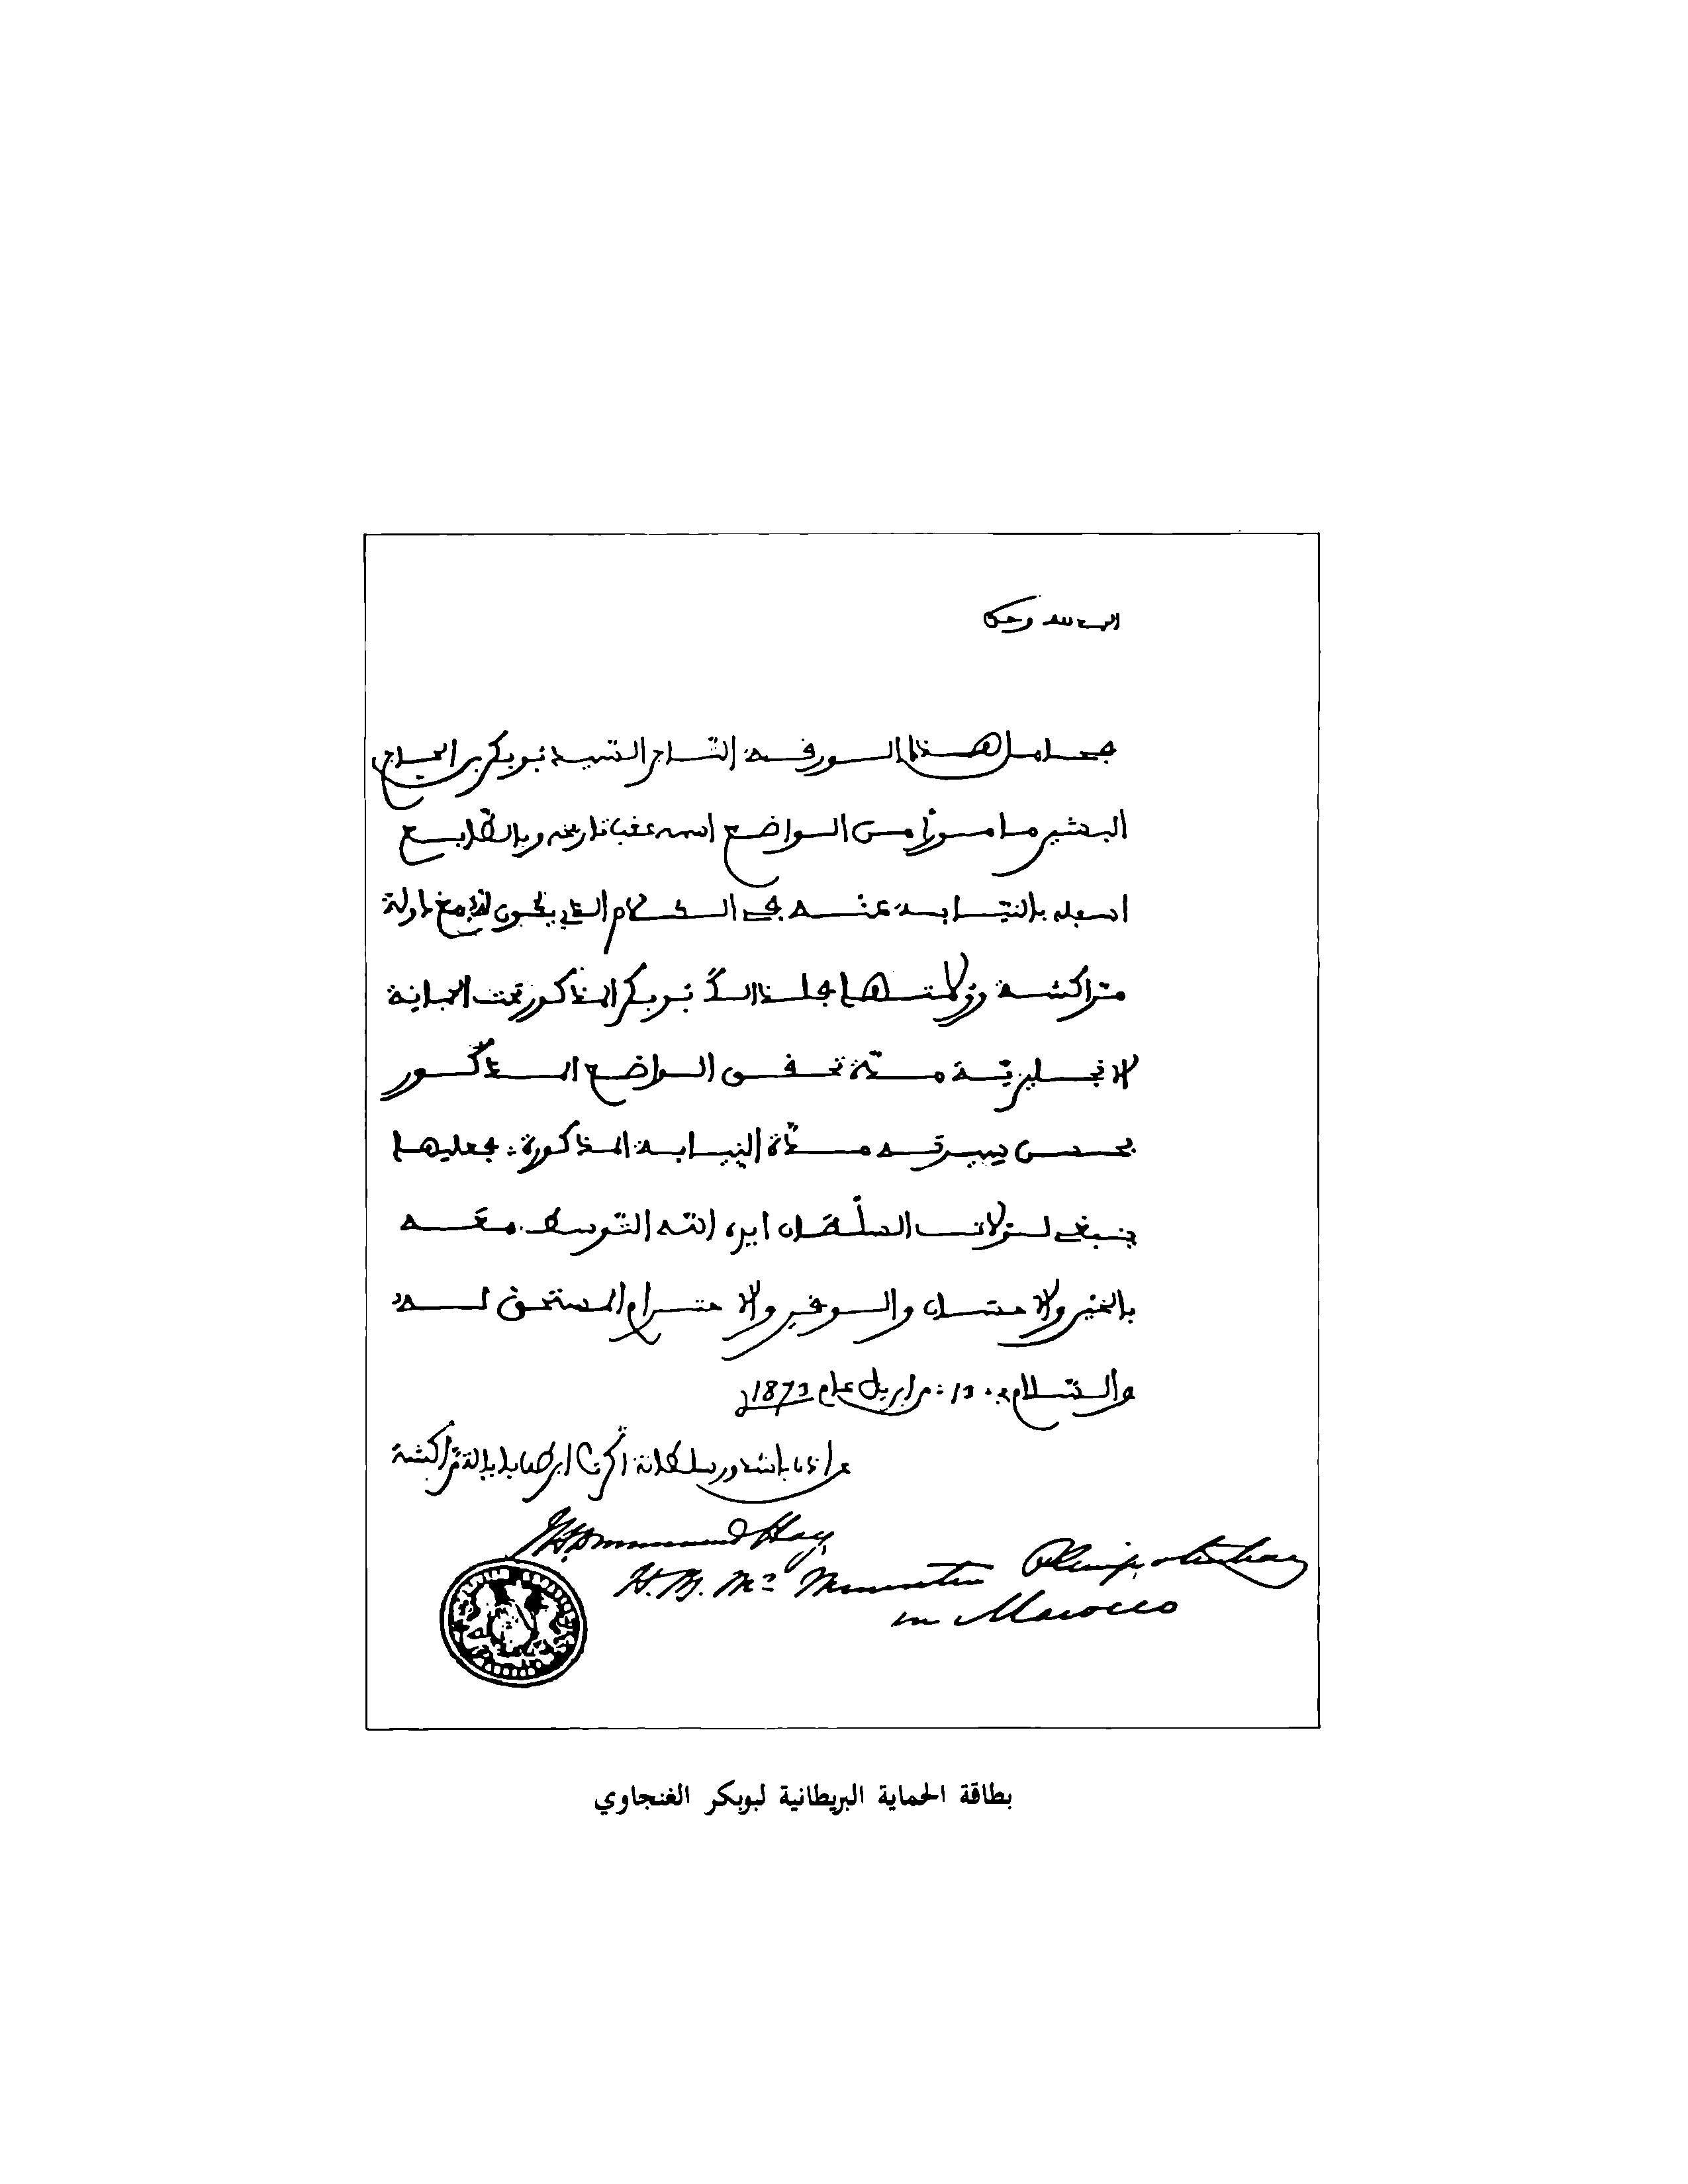 الحمد لله وحده
فحامل هذا الورقة التاجر السيد بوبكر بن الحاج
البشير مامورا من الواضع اسمه عقب تاريخه وبالطابع
اسفله بالنيابة عنه في الكلام الذي يكون له مع دولة
مراكشة وولاتها فلذلك بوبكر المذكور تحت الحماية
الانجليزية مدة تحقق الواضع المذكور
بحسن سيرته مدة النيابة المذكورة. فعليها
ينبغي لولات السلطان ايده الله معه
بالخير والاحسان والوقير والاحترام المستحق له
والسلام في 12 من ابريل عام 1873
باشدور سلطانة اكرت ابرطن بايالة مراكشة
J H Drummond Hay,
H. B. Ms Minister Plenipotentiary
in Marocco
بطاقة الحماية البريطانية لبوبكر الغنجاوي